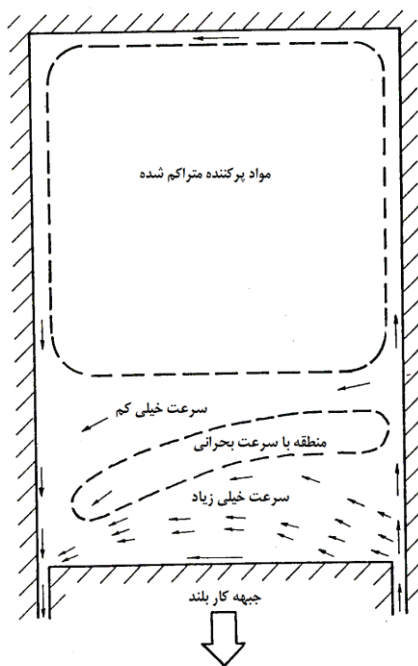 مواد پرکننده متراکم شده
سرعت خیلی کم
منطقه با سرعت بحرانی
سرعت خیلی زیاد
جبهه کار بلند